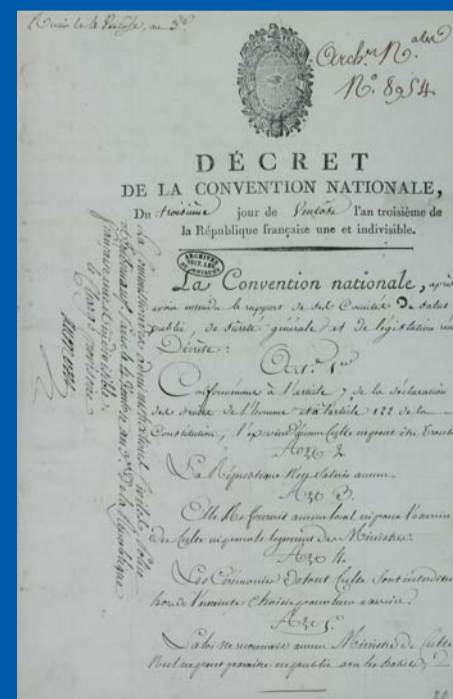 Arch.ves N.ales
N.o 8954
DÉCRET
DE LA CONVENTION NATIONALE,
Du troisième jour de Ventôse l'an troisième de
la République française une et indivisible.
ARCHIVES
La Convention nationale, après
avoir entendu le rapport de ses Comités de salut
public, de sûreté générale et de législation
Décrète:
Art. 1er
Conformément à l'article 7 de la déclaration
des droits de l'homme et à l'article 122 de la
Constitution, l'exercice d'aucun Culte ne peut être
Art 2.
La République n'en salarie aucun.
Art 3.
Elle ne fournit aucun local ni pour l'exercice
du Culte ni pour le logement des Ministres.
Art 4.
Les Cérémonies de tout Culte sont interdites
hors de l'enceinte choisie pour leur exercice.
Art 5.
La loi ne reconnait aucun Ministre de Culte
Nul ne peut paraître en public avec les habits,
La commission des administrations civiles, police
et tribunaux
la République
française une et indivisible.